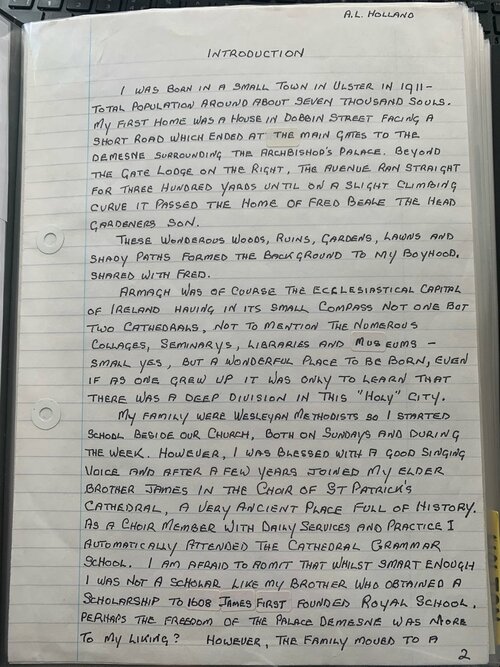 A.L. HOLLAND
INTRODUCTION
I WAS BORN IN A SMALL TOWN IN ULSTER IN 1911-
TOTAL POPULATION AROUND ABOUT SEVEN THOUSAND SOULS.
MY FIRST HOME WAS A HOUSE IN DOBBIN STREET FACING A
SHORT ROAD WHICH ENDED AT THE MAIN GATES TO THE
DEMESNE SURROUNDING THE ARCHBISHOP'S PALACE. BEYOND
THE GATE LODGE ON THE RIGHT, THE AVENUE RAN STRAIGHT
FOR THREE HUNDRED YARDS UNTIL ON A SLIGHT CLIMBING
CURVE IT PASSED THE HOME OF FRED BEALE THE HEAD
GARDENERS SON.
THESE WONDEROUS WOODS, RUINS, GARDENS, LAWNS AND
SHADY PATHS FORMED THE BACKGROUND TO MY BOYHOOD.
SHARED WITH FRED.
ARMAGH WAS OF COURSE THE ECCLESIASTICAL CAPITAL
OF IRELAND HAVING IN ITS SMALL COMPASS NOT ONE BUT
TWO CATHEDRALS, NOT TO MENTION THE NUMEROUS
COLLAGES, SEMINARYS, LIBRARIES AND MUSEUMS –
SMALL YES, BUT A WONDERFUL PLACE TO BE BORN, EVEN
IF AS ONE GREW UP IT WAS ONLY TO LEARN THAT
THERE WAS A DEEP DIVISION IN THIS "HOLY" CITY.
MY FAMILY WERE WESLEYAN METHODISTS SO I STARTED
SCHOOL BESIDE OUR CHURCH, BOTH ON SUNDAYS AND DURING
THE WEEK. HOWEVER, I WAS BLESSED WITH A GOOD SINGING
VOICE AND AFTER A FEW YEARS JOINED MY ELDER
BROTHER JAMES IN THE CHOIR OF ST PATRICK'S
CATHEDRAL, A VERY ANCIENT PLACE FULL OF HISTORY.
AS A CHOIR MEMBER WITH DAILY SERVICES AND PRACTICE I
AUTOMATICALLY ATTENDED THE CATHEDRAL GRAMMAR
SCHOOL. I AM AFRAID TO ADMIT THAT WHILST SMART ENOUGH
I WAS NOT A SCHOLAR LIKE MY BROTHER WHO OBTAINED A
SCHOLARSHIP TO 1608 JAMES FIRST FOUNDED ROYAL SCHOOL.
PERHAPS THE FREEDOM OF THE PALACE DEMESNE WAS MORE
TO MY LIKING? HOWEVER, THE FAMILY MOVED TO A
2